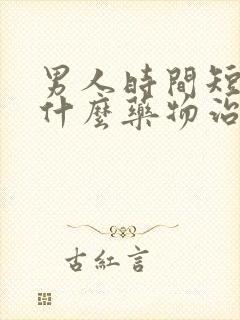 男人時間短
什麼藥物治
古紅言